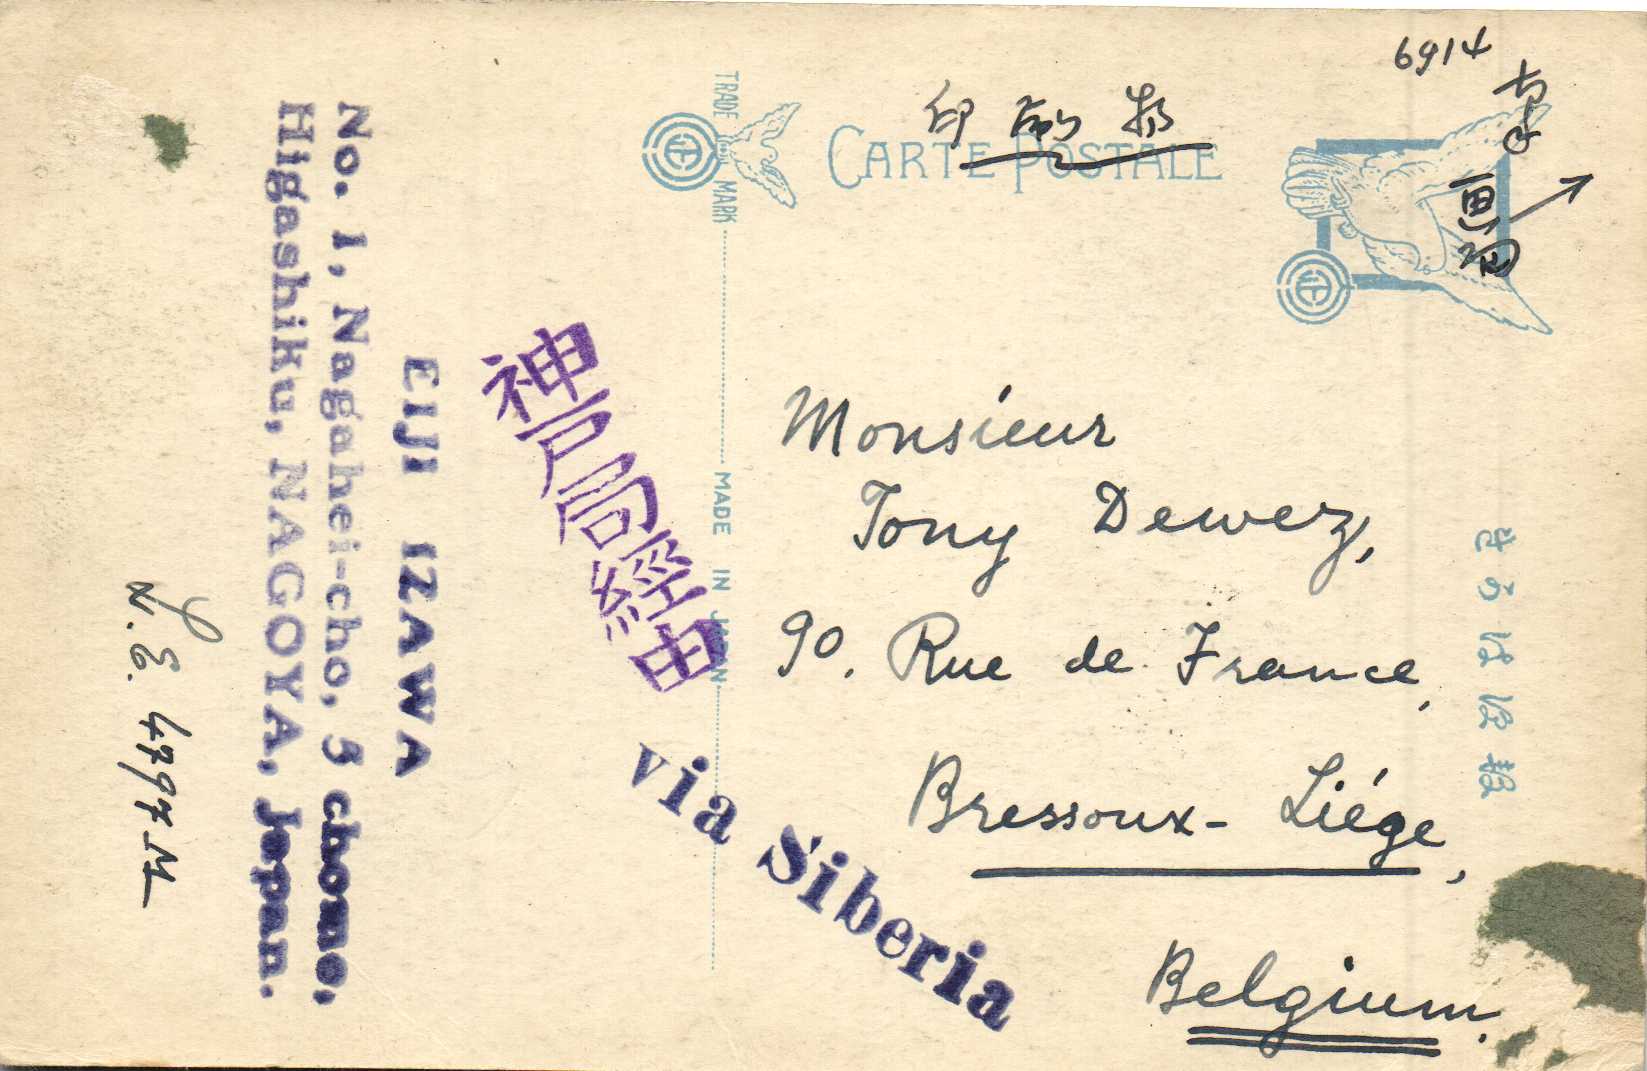 6914
印刷物
CARTE POSTALE
TRADE MARK
Monsieur
Tony Dewez,
90. Rue de France,
Bressoux-Liége,
Belgium.
神戸局經由
via Siberia
MADE IN JAPAN
EIJI IZAWA
No. 1, Nagahei-cho, 3 chome,
Higashiku, NAGOYA, Japan.